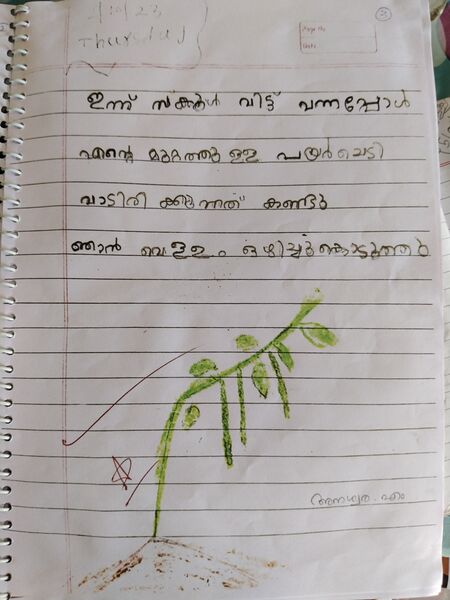 Thursday
3
Page No.
Date:
ഇന്ന് സ്കൂൾ വിട്ട് വന്നപ്പോൾ
എന്റെ മുറ്റത്തു ള്ള പയർചെടി
വാടിരി ക്കുന്നത് കണ്ടു
ഞാൻ വെള്ളം ഒഴിച്ചുകൊടുത്തു